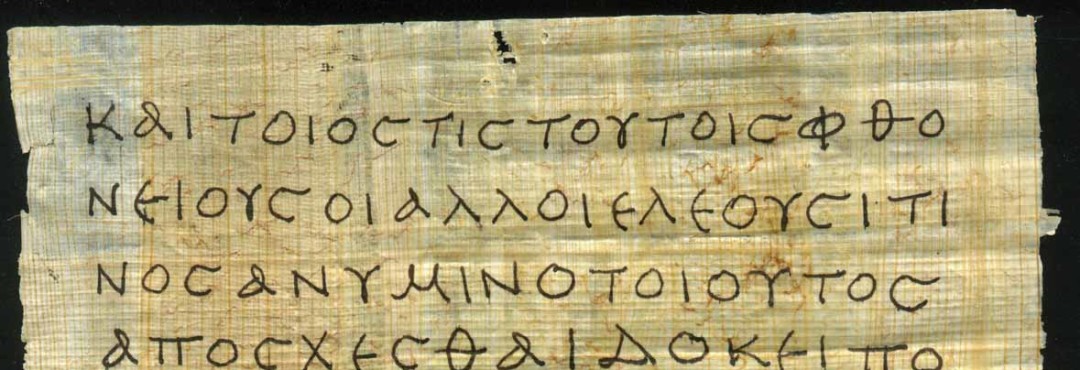 ΚΑΙΤΟΙΟϹΤΙϹΤΟΥΤΟΙϹΦΘΟ
ΝΕΙΟΥϹΟΙΑΛΛΟΙΕΛΕΟΥϹΙΤΙ
ΝΟϹΑΝΥΜΙΝΟΤΟΙΟΥΤΟϹ
ΑΠΟϹΧΕϹΘΑΙΔΟΚΕΙΠΟ